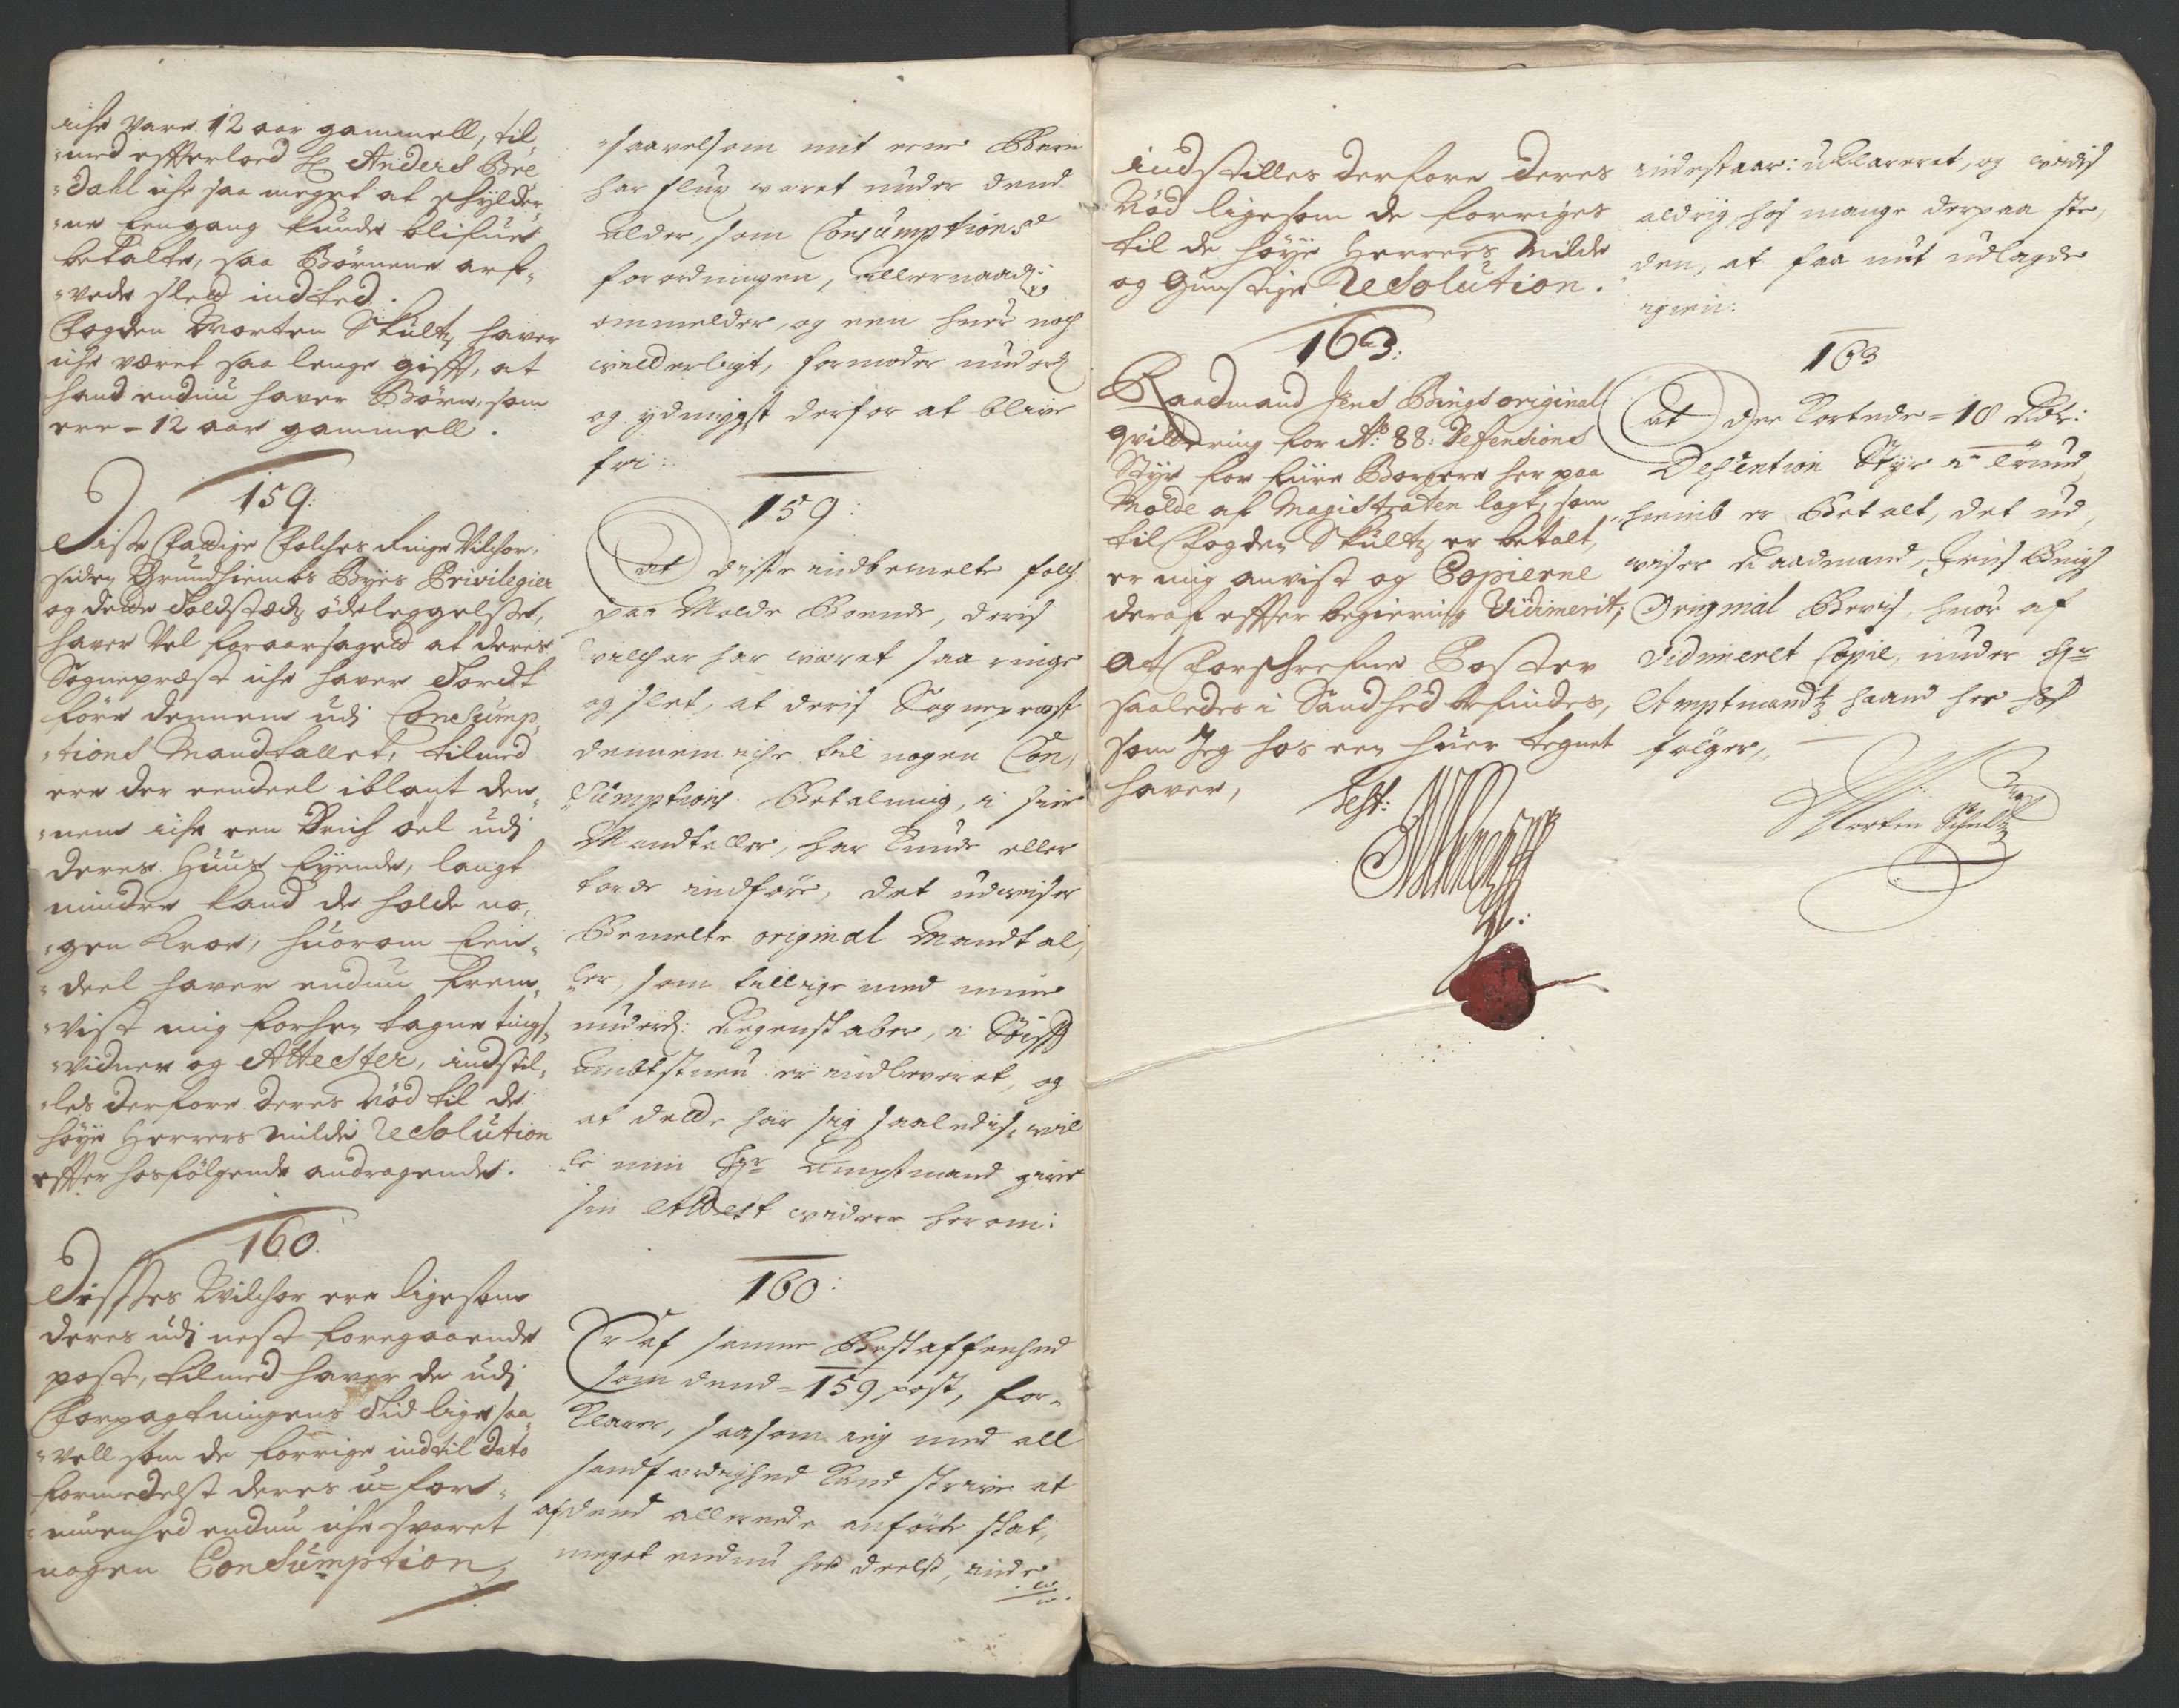 iche vare 12 aar gammell, til-
-med effterloed Hr Anders Bre
-dahl iche saa meget at skylder
-ne Eengang kunde blifue
betalte, saa Børnene arf-
-vede slett indted.
Fogden Morten Skultz haver
iche været saa lenge gifft, at
hand endnu haver Børn, som
ere - 12 aar gammell.
159:
Disse Fattige Folches Ringe Vilchor,
siden Trundhiembs Byes Privilegier
og dette Toldstæds ödeleggelsse,
haver vel foraarsaged at deres
Sognepræst iche haver Tordt
före dennem udj Consump-
-tions Mandtallet, tilmed
ere der eendeel iblant den-
-nem iche een Drich öel udj
deres Huus Eyende, langt
mindre kand de holde no-
-gen Kroe, huorom Een-
-deel haver endnu frem-
-vist mig forhen tagne tings-
-vidner og Attester, indstil-
-les derfore deres Nöd til de
höye Herrers milde Resolution
effter hosfölgende andragende.
160.
Disses Vilchor ere ligesom
deres udj nest foregaaende
post, tilmed haver de udj
Forpagtningens Tid lige saa
-vell som de forrige indtil dato
formedelst deres u-for-
-muenhed endnu iche svaret
nogen Consumption,
-saavelsom mit eene Barn
har slux været under dend
alder, som Consumptions
forordningen, allernaadigst
ommelder, og een huer noch
vitterligt, formoder underd
og ydmygst derfor at blive
fri:
159:
At disse indbemelte folch
paa Molde Boende, deris
vilchor har været saa ringe
og slet, at deris Sognepræst
dennem iche til nogen Con,
sumptions Betalning, i sine
Mandtaller, har kunde eller
torde indføre, det udviser
Bemelte original Mandtal,
ler, som tillige med mine
underd: Regenskaber, i Stifft
Ambtstuen er indleveret, og
at dette har sig saaledis, vil
le min Hr Amptmand give
sin Attest videre herom:
160:
Er af samme Beskaffenhed
som dend - 159 post, for-
klarer, saasom ieg med all
sandfærdighed kand skrive at
af dend allerede anförte skat,
meget endnu hos deelß, inde
indstilles derfore deres
Nöd ligesom de forriges
til de höye Herrers milde
og Gunstige Resolution.
163:
Raadmand Jens Bings original
qvittering for Ao: 88: Defensions
Styr for fiire Borgere her paa
Molde af Magistraten lagt, som
til Fogden Skultz er betalt,
er mig anvist og Copierne
deraf effter begiering Vidimerit;
At Forschrefne Poster
saaledes i Sandhed befindes,
som Jeg hos een huer tegnet
haver,
Test:
indestaar: uklareret, og vides
aldrig hos mange derpaa ste,
den, at faa mit udlagde
igien:
163
At der kortede = 18 Rdr:
Defention Styr i Trund
hiemb er Betalt, det ud,
viser Raadmand Jens Bings
Original Bevis, huor af
Vidimeret Copie, under Hr
Amptmandtz haand her hos
følger,
Morten Schultz